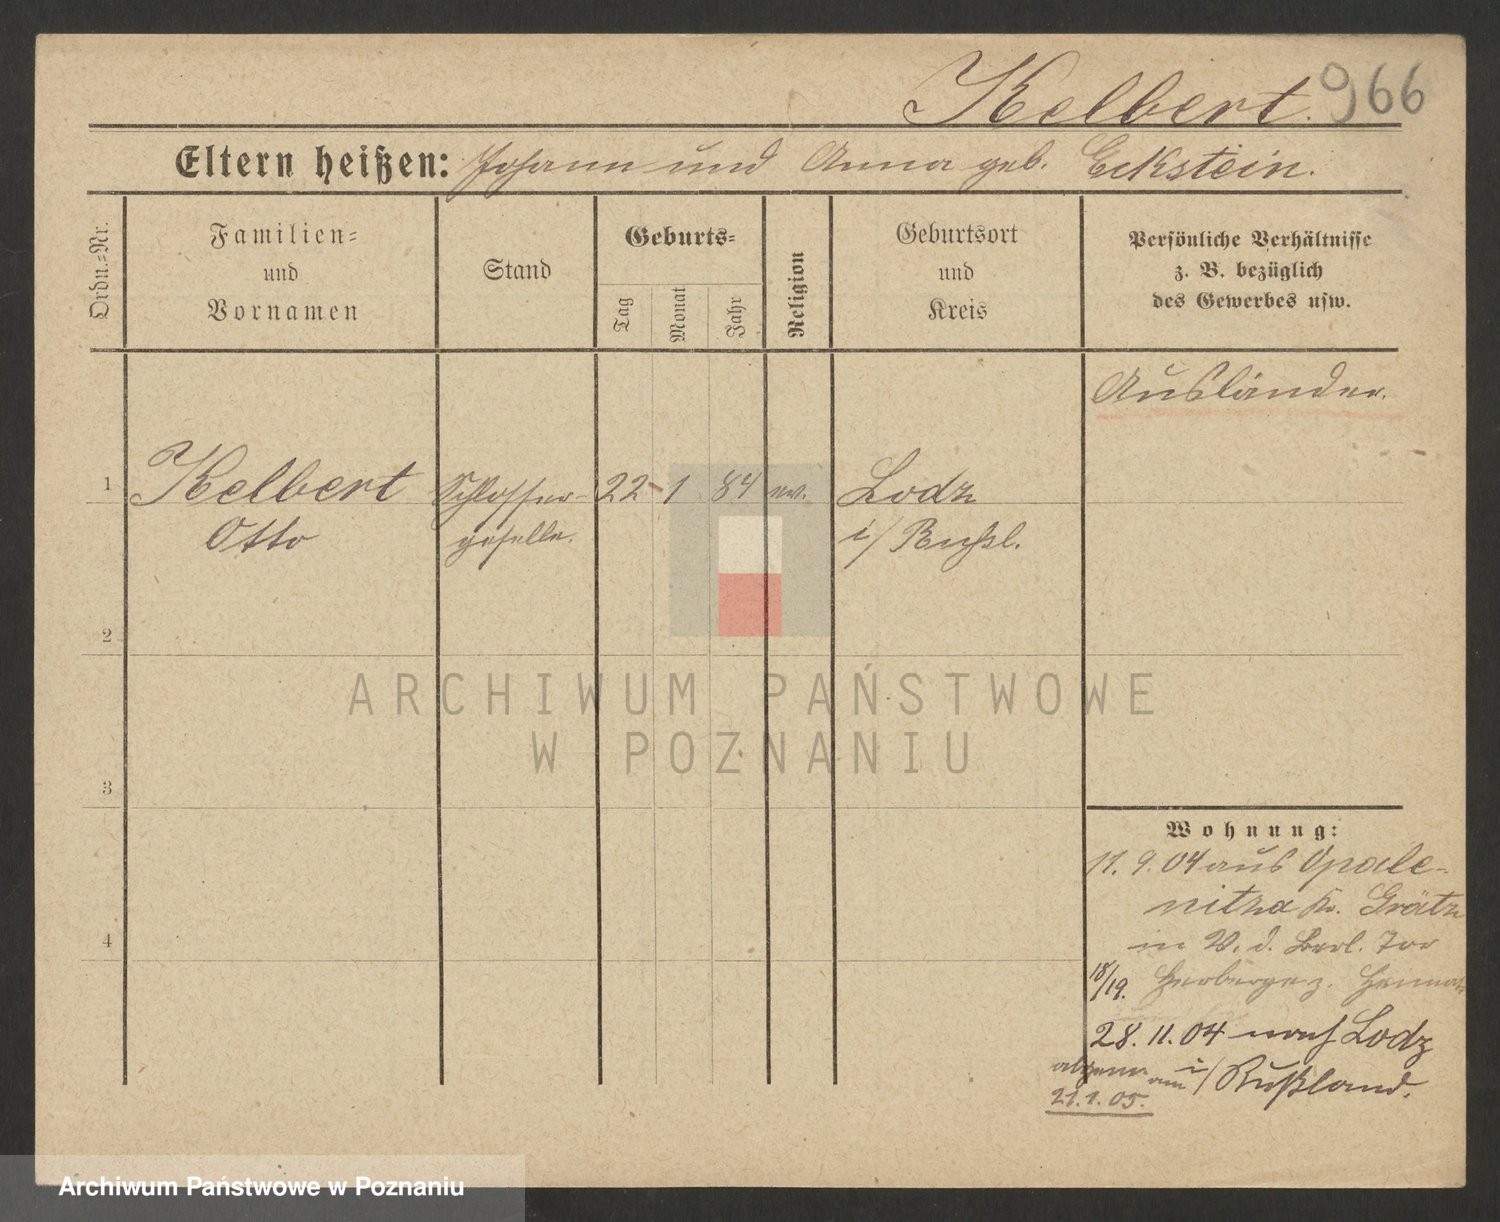 Kelbert. 966
Eltern heißen: Johann und Anna geb. Eckstein.
Ordn.=Nr.
Familien=
und
Vornamen
Stand
Geburts=
Tag
Monat
Jahr
Religion
Geburtsort
und
Kreis
Persönliche Verhältnisse
z. B. bezüglich
des Gewerbes usw.
Ausländer.
1 Kelbert Schlosser= 22 1 84 ev. Lodz
Otto geselle. i/ Rußl.
2
3
4
ARCHIWUM PAŃSTWOWE
W POZNANIU
Wohnung:
11. 9. 04 aus Opale-
nitza Kr. Grätz
in W. d. Berl. Tor
18/19. Herberge z. Heimat
28. 11. 04 nach Lodz
i/ Rußland.
abgem. am
21. 1. 05.
Archiwum Państwowe w Poznaniu